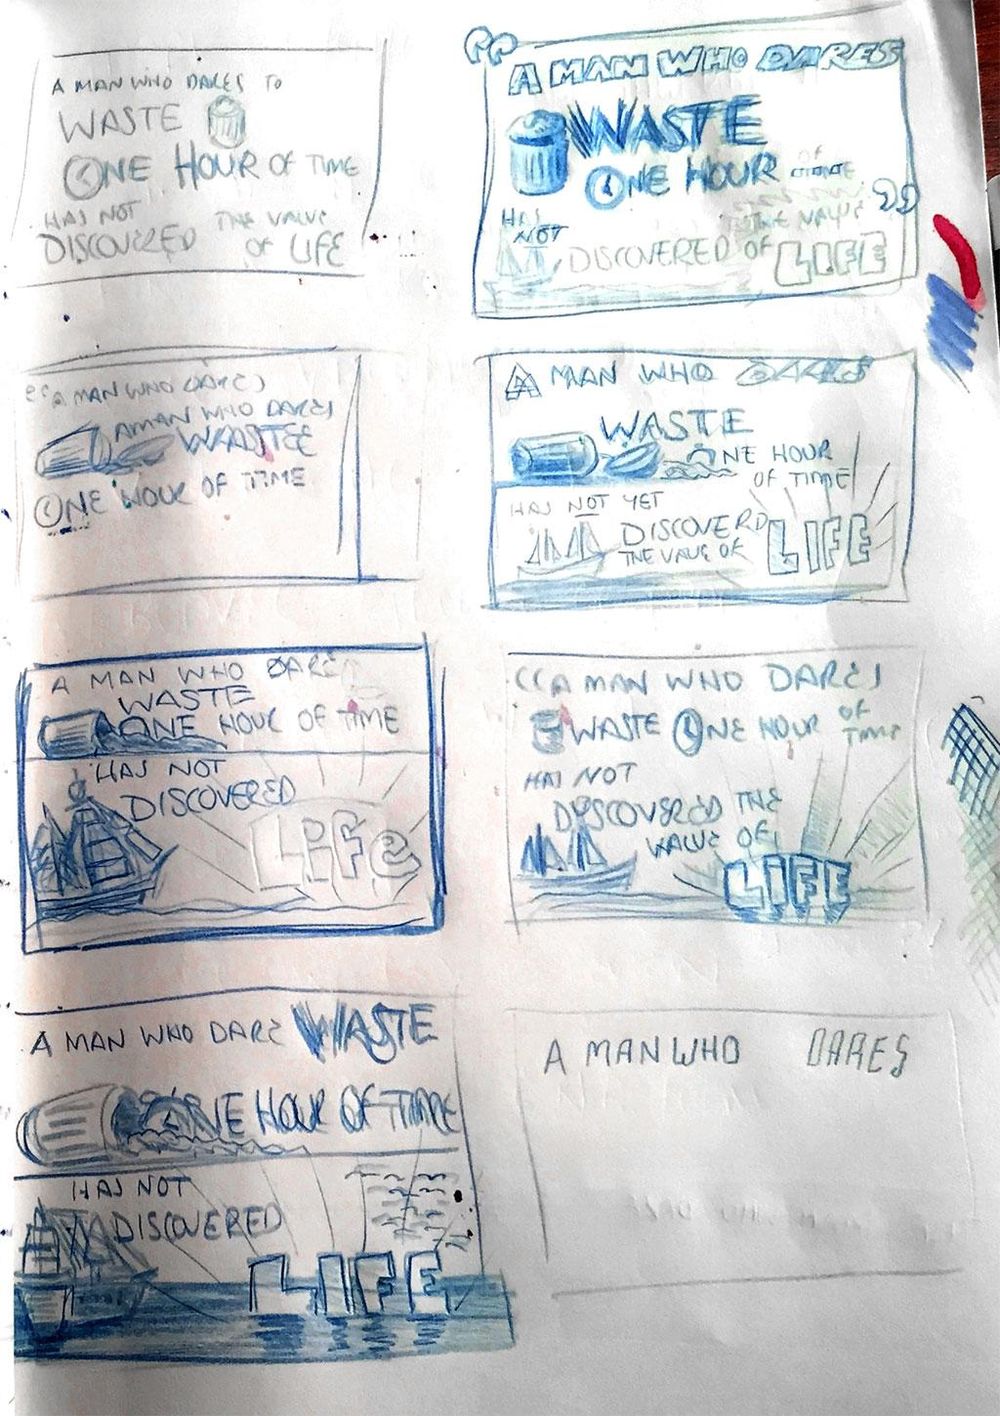 A MAN WHO DARES TO
WASTE
ONE HOUR OF TIME
HAS NOT THE VALUE
DISCOVERED OF LIFE
"A MAN WHO DARES
WASTE
ONE HOUR OF
HAS THE VALUE "
NOT
DISCOVERED OF LIFE
"A MAN WHO DARES
A MAN WHO DARES
WAASTEE
ONE HOUR OF TIME
A MAN WHO DARES
WASTE
ONE HOUR
OF TIME
HAS NOT YET
DISCOVERD
THE VALUE OF LIFE
A MAN WHO DARE
WASTE
ONE HOUR OF TIME
HAS NOT
DISCOVERED
LIFe
"A MAN WHO DARES
WASTE ONE HOUR OF
TIME
HAS NOT
DISCOVERED THE
VALUE OF
LIFE
A MAN WHO DARE WASTE
ONE HOUR OF TIME
HAS NOT
DISCOVERED
LIFE
A MAN WHO DARES